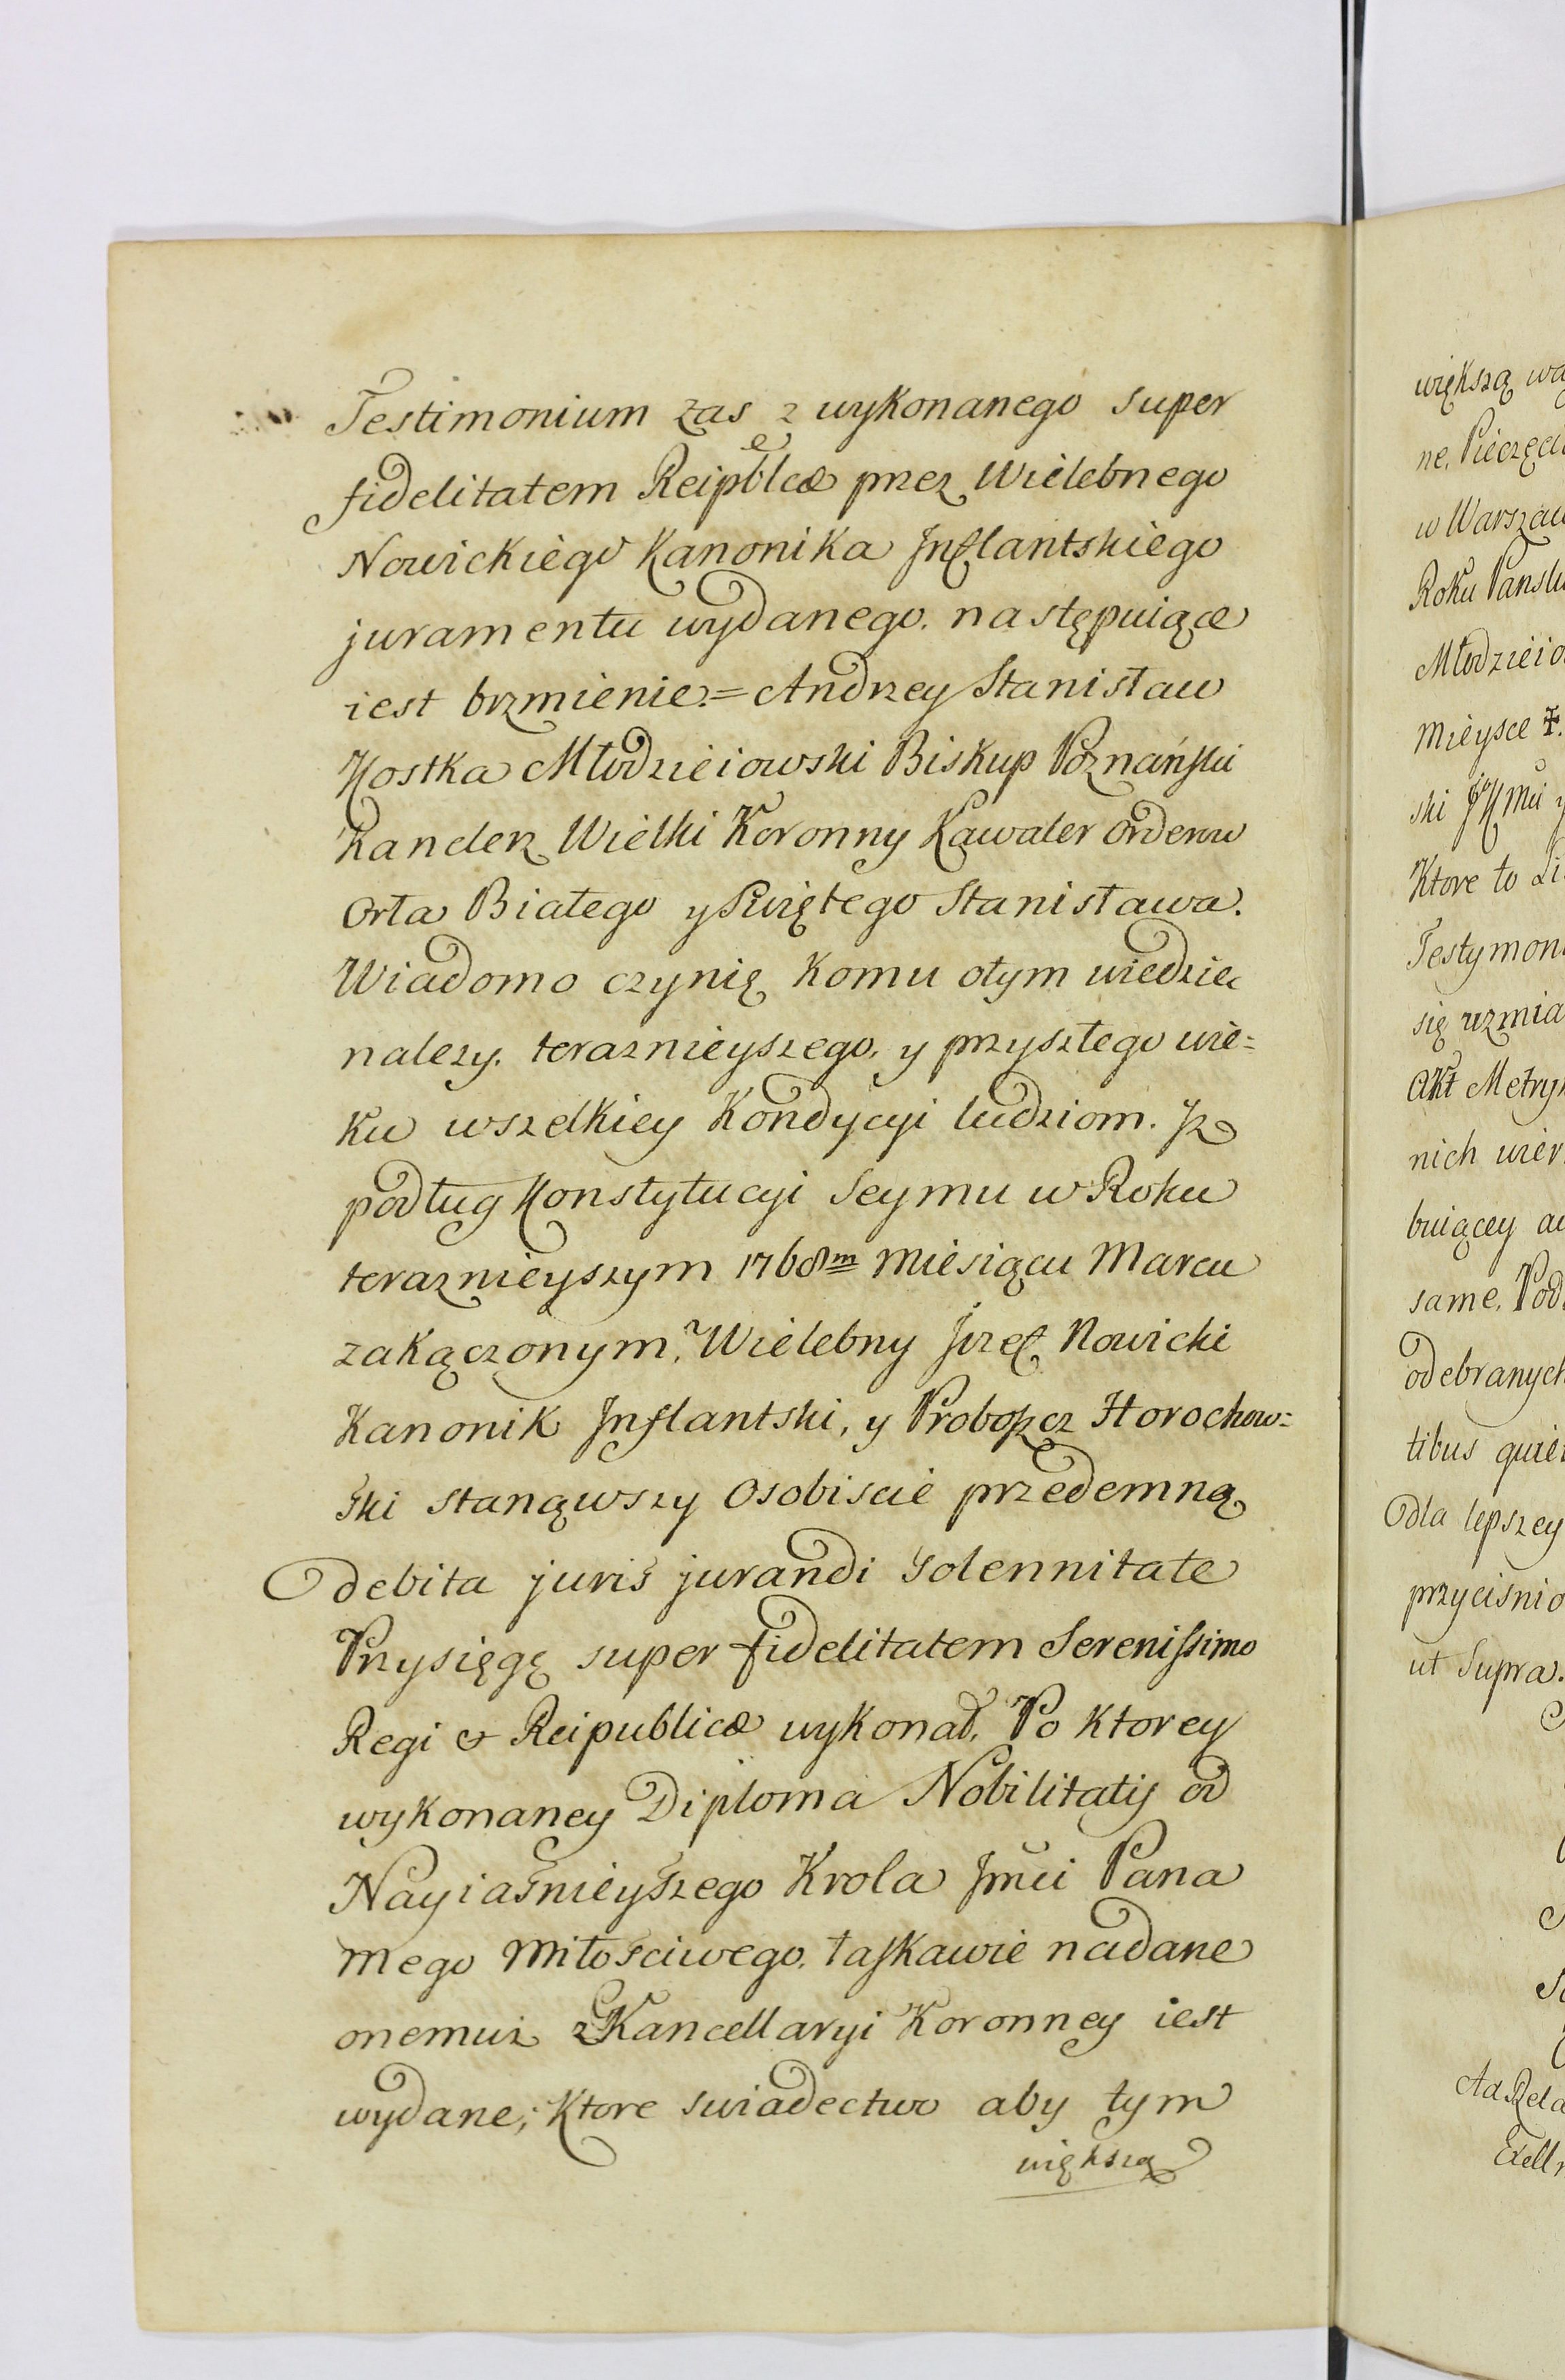 Testimonium zas z wykonanego super
fidelitatem Reipblcæ przez Wielebnego
Nowickiego Kanonika Inflantskiego
juramentu wydanego. następuiące
iest brzmienie.= Andrzey Stanisław
Kostka Młodzieiowski Biskup Poznański
Kanclerz Wielki Koronny Kawaler Orderow
Orła Białego y Swiętego Stanisława.
Wiadomo czynię komu otym wiedziec
nalezy. teraznieyszego, y przyszłego wie=
ku wszelkiey Kondycyi ludziom. Iz
podług Konstytucyi Seymu w Roku
teraznieyszym 1768m Miesiącu Marcu
zakączonym, Wielebny Jozef Nowicki
Kanonik Inflantski, y Proboszcz Horochow=
ski stanąwszy Osobiscie przedemną
debita juris jurandi Solennitate
Przysięgę super fidelitatem Serenissimo
Regi & Reipublicæ wykonał. Po ktorey
wykonaney Diploma Nobilitatis od
Nayiaśnieyszego Krola Jmci Pana
mego Miłościwego, łaskawie nadane
onemuz z Kancellaryi Koronney iest
wydane; Ktore swiadectwo aby tym
większą
większą
ne, Pieczęci
w Warszaw
Roku Pansk
Młodzieio
Mieysce
ski
Ktore to
Testymon
się
Akt Metryk
nich
buiącey
same, Pod
odebranych
tibus
dla lepszey
przycisnio
ut Supra.
Ad Rela